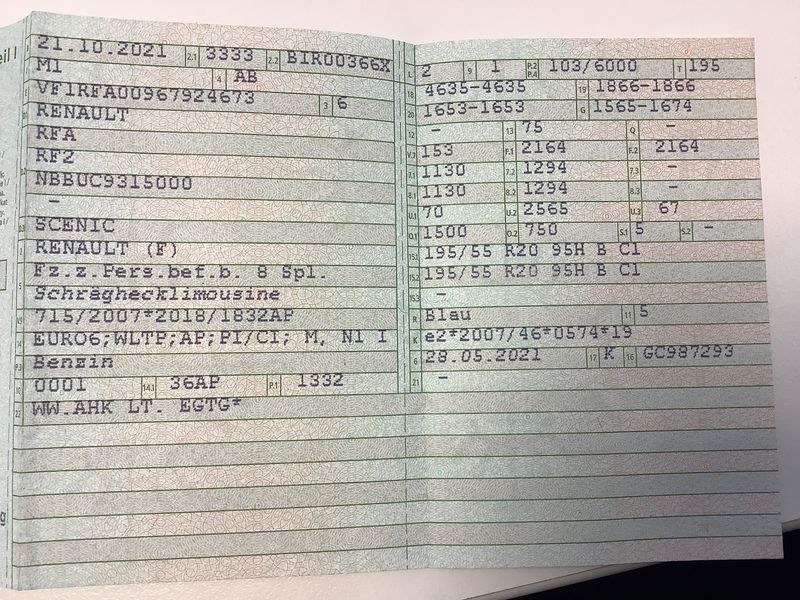 eil I
21.10.2021 2.1 3333 2.2 BIR00366X
M1 4 AB
VF1RFA00967924673 3 6
RENAULT
RFA
RF2
NBBUC9315000
-
SCENIC
RENAULT (F)
Fz.z.Pers.bef.b. 8 Spl.
Schräghecklimousine
715/2007*2018/1832AP
EURO6;WLTP;AP;PI/CI; M, N1 I
P.3 Benzin
10 0001 14.1 36AP P.1 1332
22 WW.AHK LT. EGTG*
L 2 9 1 P.2 P.4 103/6000 T 195
18 4635-4635 19 1866-1866
20 1653-1653 G 1565-1674
12 - 13 75 Q -
V.7 153 F.1 2164 F.2 2164
7.1 1130 7.2 1294 7.3 -
8.1 1130 8.2 1294 8.3 -
U.1 70 U.2 2565 U.3 67
O.1 1500 O.2 750 S.1 5 S.2 -
15.1 195/55 R20 95H B C1
15.2 195/55 R20 95H B C1
15.3 -
R Blau 11 5
K e2*2007/46*0574*19
6 28.05.2021 17 K 16 GC987293
21 -